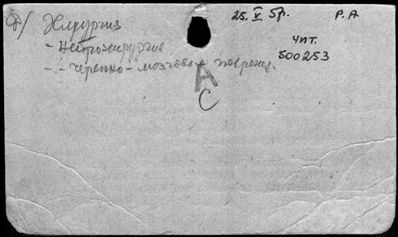 Хирургия
25. V. 57. Р.А.
- Нейрохирургия
чит.
500253
- черепно-мозговые поврежд.
А
С